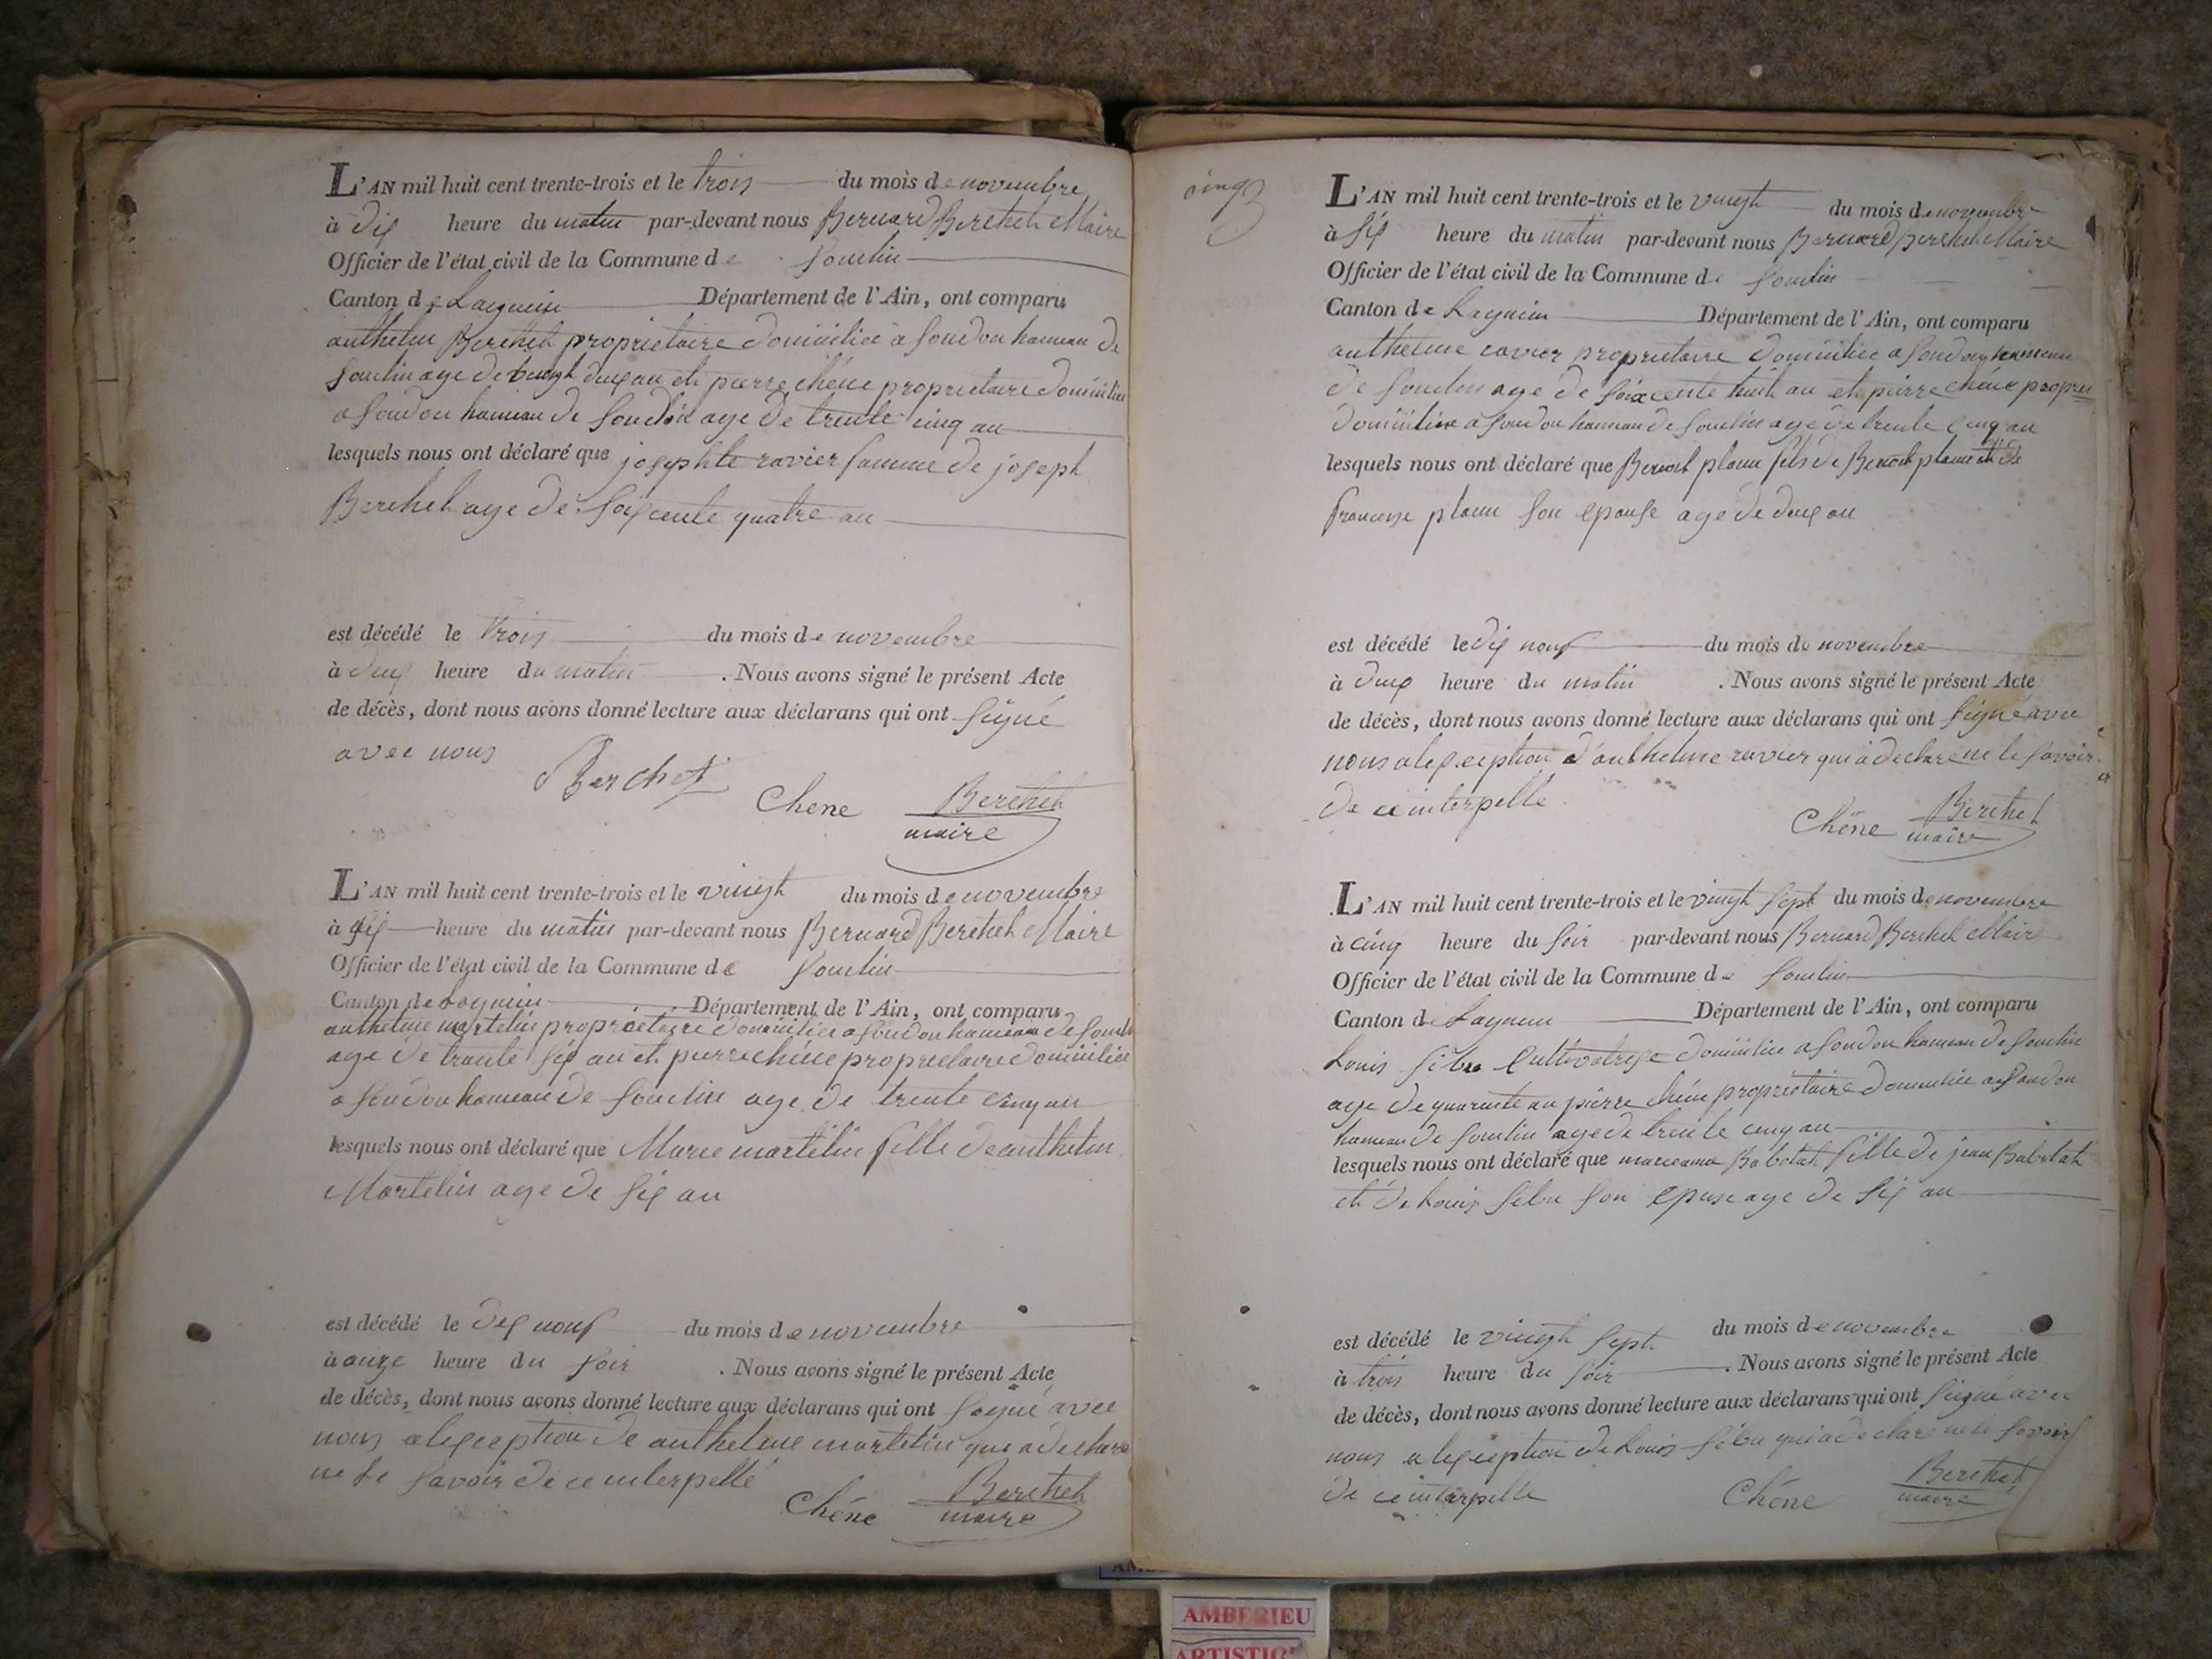 L'AN mil huit cent trente-trois et le trois du mois de novembre
à dix heure du matin par-devant nous Bernard Berthet Maire
Officier de l'état civil de la Commune de Souclin
Canton de Lagnieu Département de l'Ain, ont comparu
anthelme Berthet proprietaire domicilié a Soudon hameau de
Souclin age de vingt deux an et pierre chêne proprietaire domicilié
a Soudon hameau de Souclin age de trente cinq an
lesquels nous ont déclaré que josephte ravier famme de joseph
Berthet age de soixente quatre an
est décédé le trois du mois de novembre
à deux heure du matin . Nous avons signé le présent Acte
de décès, dont nous avons donné lecture aux déclarans qui ont signé
avec nous
Berchet Chene Berthet
maire
L'AN mil huit cent trente-trois et le vingt du mois de novembre
à six heure du matin par-devant nous Bernard Berthet Maire
Officier de l'état civil de la Commune de Souclin
Canton de Lagnieu Département de l'Ain, ont comparu
anthelme martelin proprietaire domicilié a Soudon hameau de
age de trante six an et pierre chêne proprietaire domicilié
a Soudon hameau de Souclin age de trente cinq an
lesquels nous ont déclaré que Marie martelin fille de anthelm
Martelin age de six an
est décédé le dix nouf du mois de novembre
à onze heure du soir . Nous avons signé le présent Acte
de décès, dont nous avons donné lecture aux déclarans qui ont signé avec
nous a lexception de anthelme martelin qui a declare
ne le savoir de ce interpellé
Chêne Berthet
maire
cinq
L'AN mil huit cent trente-trois et le vingt du mois de novembre
à six heure du matin par-devant nous Bernard Berthet Maire
Officier de l'état civil de la Commune de Souclin
Canton de Lagnieu Département de l'Ain, ont comparu
anthelme ravier proprietaire domicilié a Soudon hameau
de Souclin age de soixcente huit an et pierre chêne
domicilié a Soudon hameau de Souclin age de trente cinq an
lesquels nous ont déclaré que Benoit plann fils de Benoit plann et de
francoise plann son epouse age de deux an
est décédé le dix nouf du mois de novembre
à deux heure du matin . Nous avons signé le présent Acte
de décès, dont nous avons donné lecture aux déclarans qui ont signé avec
nous a lexception d'anthelme ravier qui a declaré ne le savoir
de ce interpelle
Chêne Berthet
maire
L'AN mil huit cent trente-trois et le vingt sept du mois de novembre
à cinq heure du soir par-devant nous Bernard Berthet Maire
Officier de l'état civil de la Commune de Souclin
Canton de Lagnieu Département de l'Ain, ont comparu
Louis cultivatrise domicilié a Soudon hameau de Souclin
age de quarente an pierre chêne proprietaire domicilie a Soudon
hameau de Souclin age de trente cinq an
lesquels nous ont déclaré que Babolat fille de jean Babolat
et de Louis son epuse age de six an
est décédé le vingt sept du mois de novembre
à trois heure du soir . Nous avons signé le présent Acte
de décès, dont nous avons donné lecture aux déclarans qui ont signé avec
nous a lexception de Louis qui a declaré ne le savoir
de ce interpelle
Chêne Berthet
maire
AMBERIEU